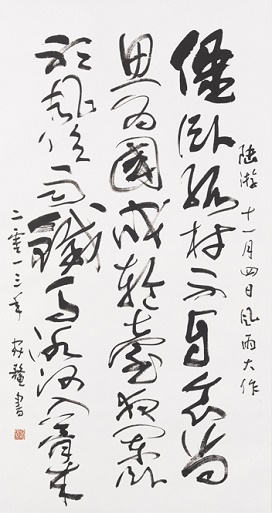 陸游 十一月四日风雨大作
僵卧孤村不自哀尚
思为國戍轮臺夜阑卧
听风吹雨鐵马冰河入夢来
二零一三年 書